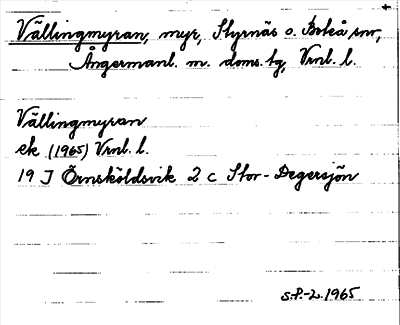 Vällingmyran, myr, Styrnäs o. Boteå snr,
Ångermanl. m. doms. tg, Vrnl. l.
Vällingmyran
ek (1965) Vrnl. l.
19 J Örnsköldsvik 2 c Stor-Degersjön
S.P.-L. 1965